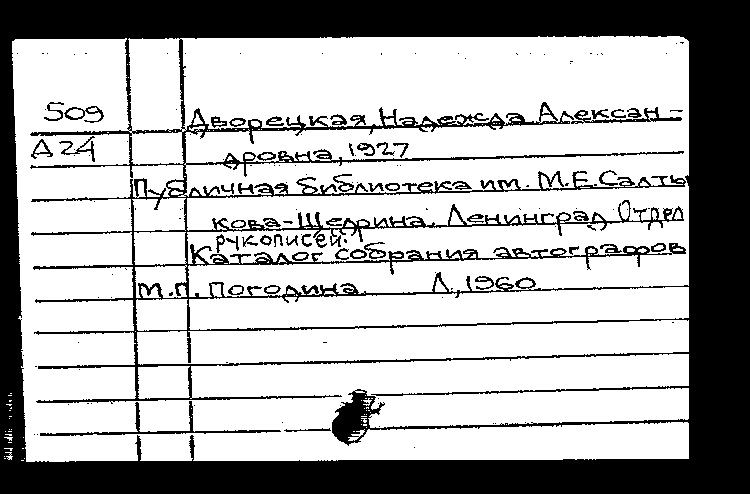 509 Дворецкая, Надежда Алексан-
А24 дровна, 1927
Публичная библиотека им. М.Е.Салты
кова-Щедрина. Ленинград Отдел
рукописей.
Каталог собрания автографов
М.П. Погодина. Л., 1960